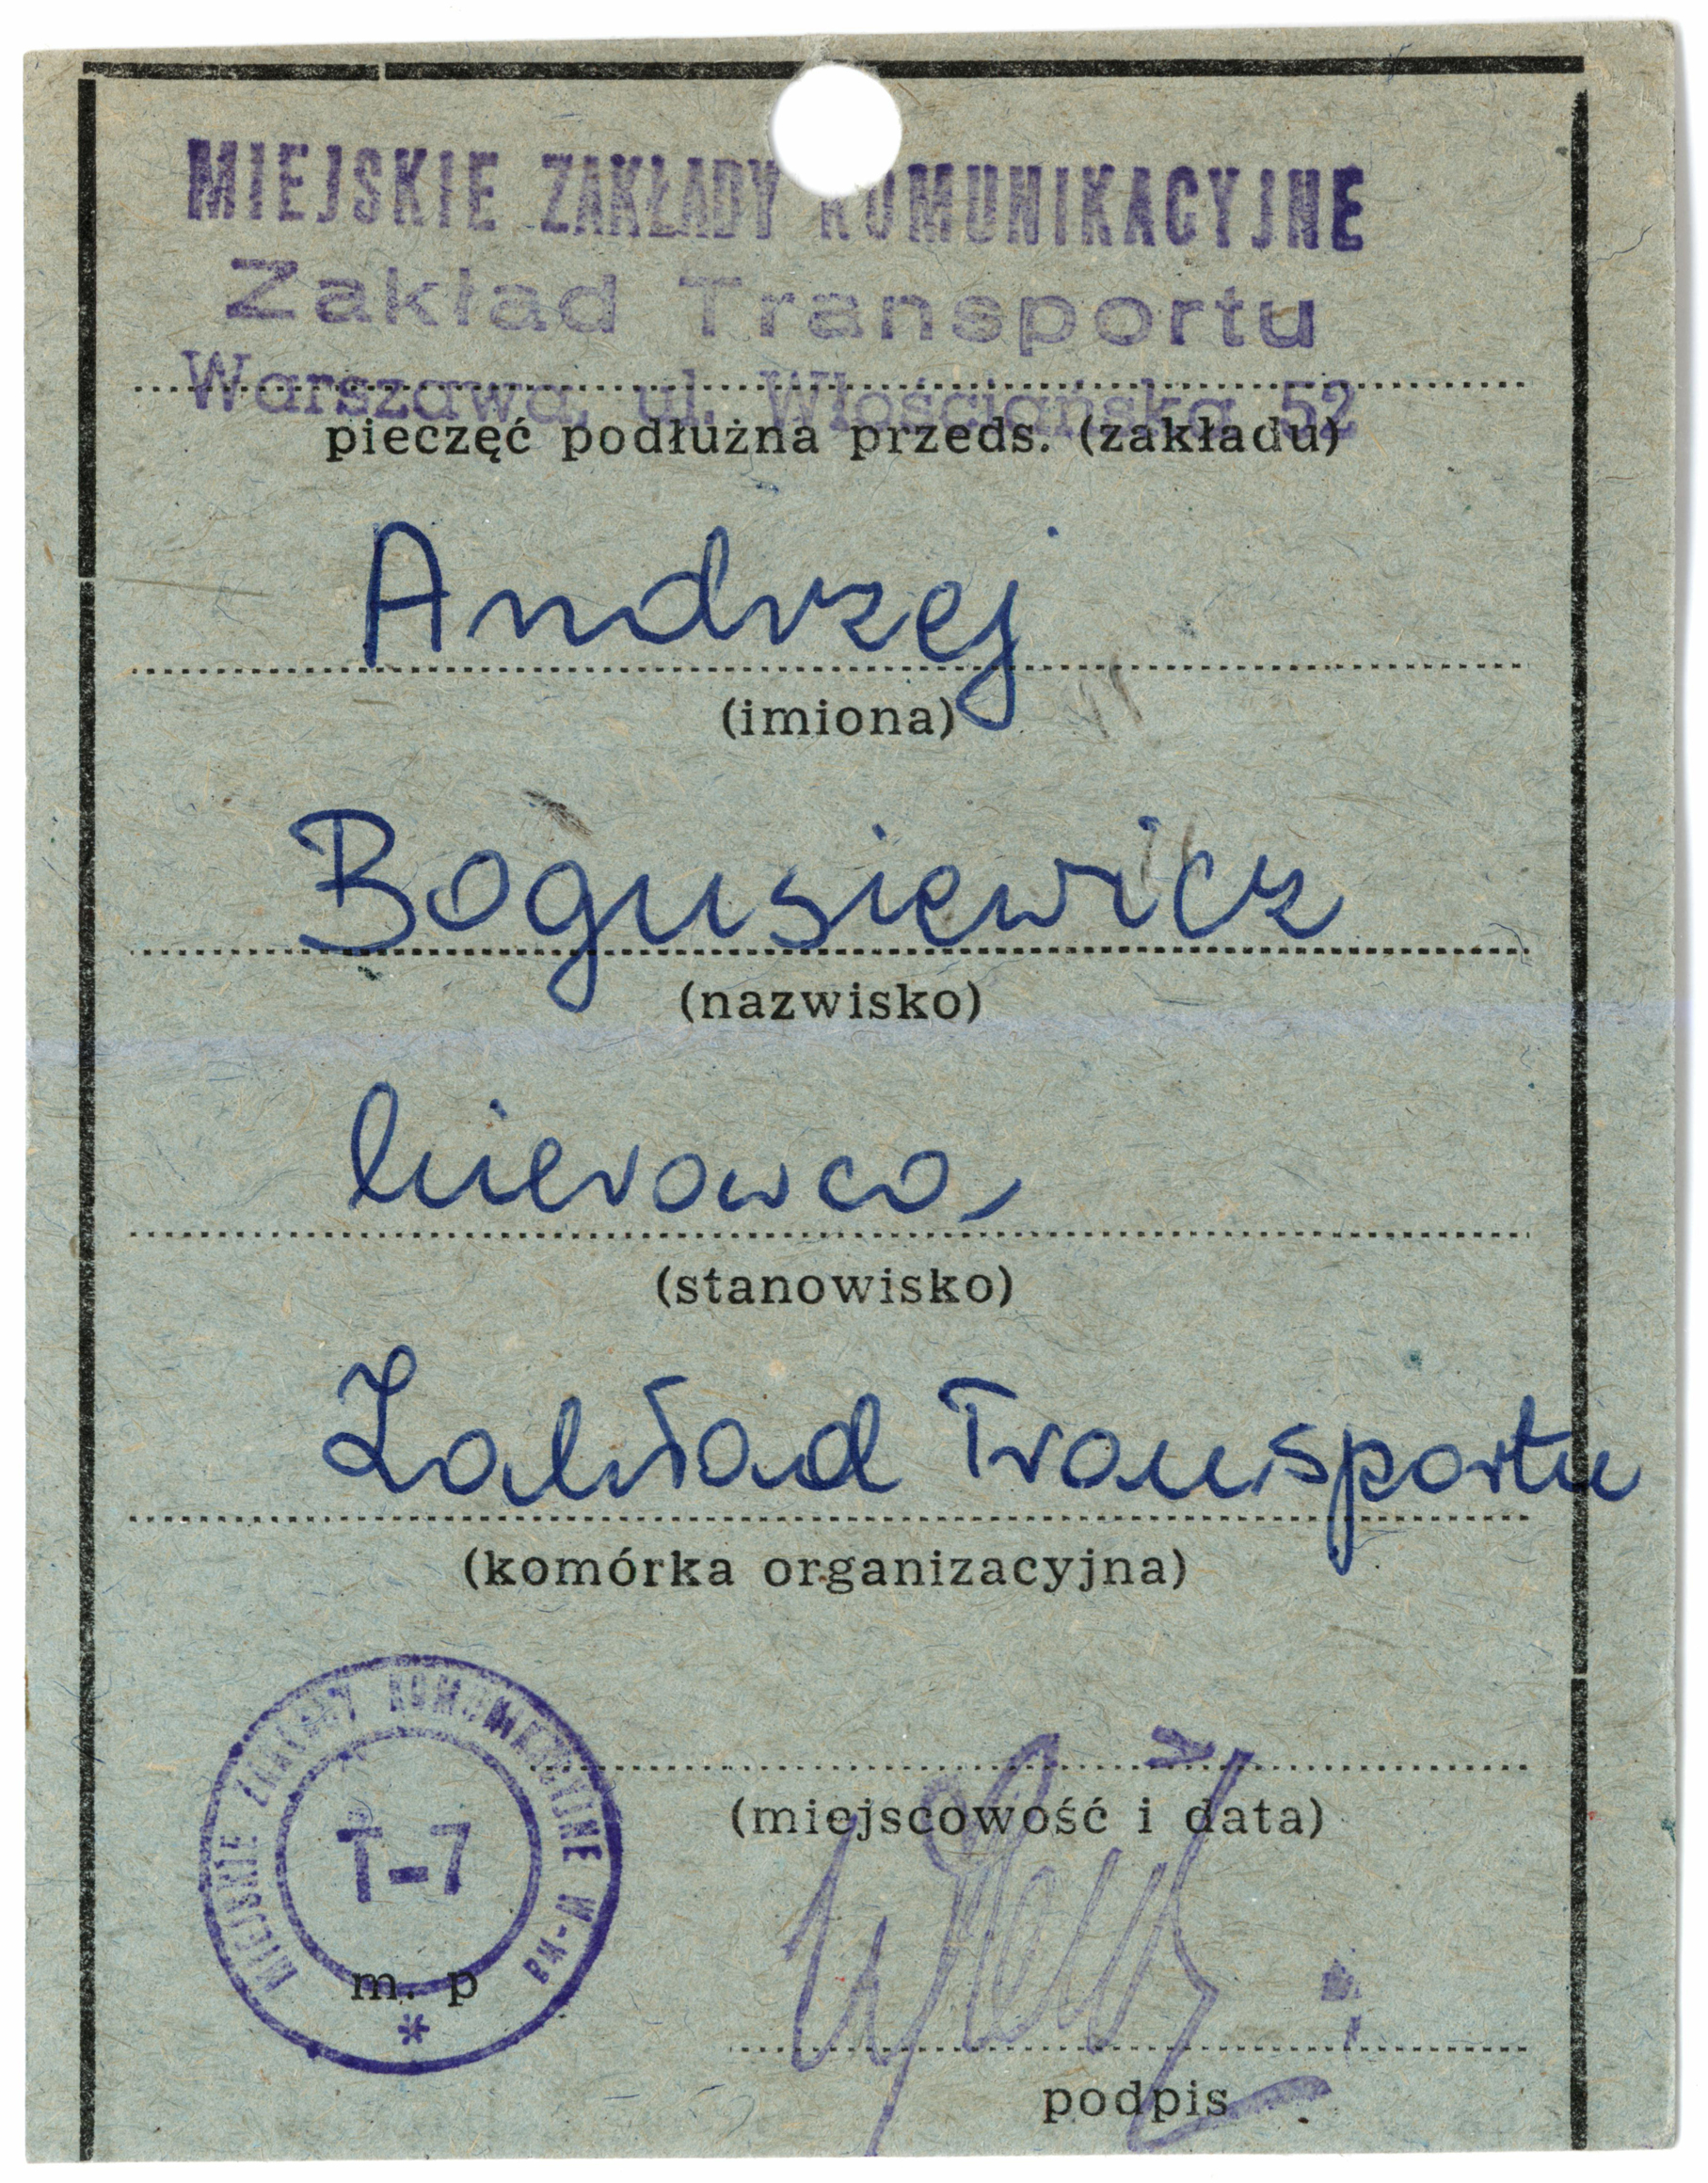 MIEJSKIE ZAKŁADY KOMUNIKACYJNE
Zakład Transportu
Warszawa, ul. Włościańska 52
pieczęć podłużna przeds. (zakładu)
Andrzej
(imiona)
Bogusiewicz
(nazwisko)
kierowca
(stanowisko)
Zakład Transportu
(komórka organizacyjna)
MIEJSKIE ZAKŁADY KOMUNIKACYJNE W-wa
T-7
m. p
*
(miejscowość i data)
podpis